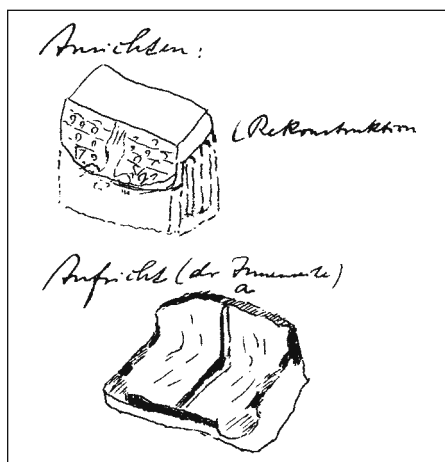 Ansichten:
(Rekonstruktion
Aufsicht (der Innenseite)
a